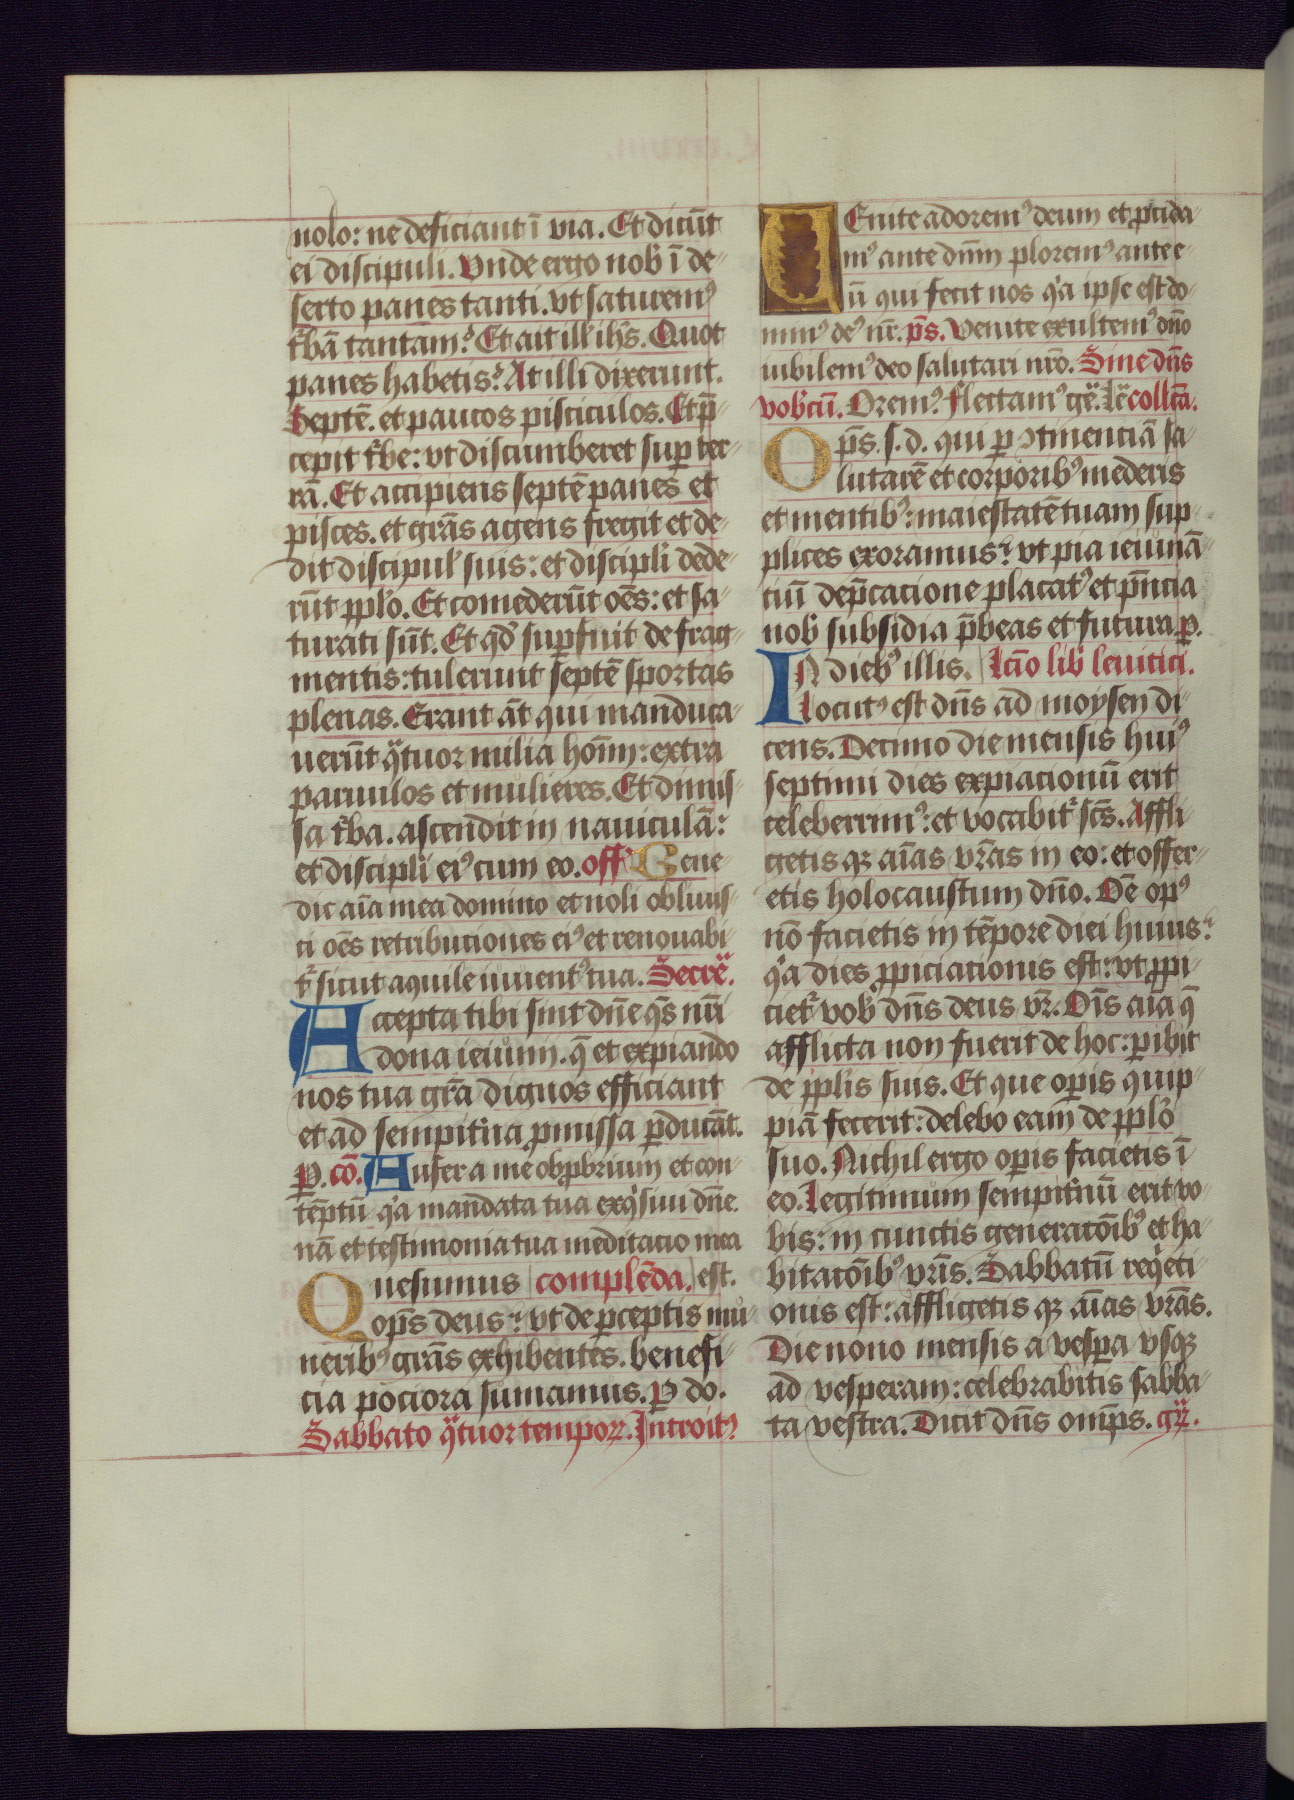 nolo: ne deficiant ī via. Et dicūt
ei discipuli. Vnde ergo nob̄ ī de-
serto panes tanti. vt saturemꝰ
t̄bā tantam? Et ait ill' ihs̄. Quot
panes habetis? At illi dixerunt.
Septē. et paucos pisciculos. Et p̄-
cepit t̄be: vt discumberet suꝑ ter-
rā. Et accipiens septē panes et
pisces. et grās agens fregit et de-
dit discipul' suis: et discipl̄i dede-
rūt ppl̄o. Et comederūt oēs: et sa-
turati sūt. Et qd̄ suꝑfuit de frag-
mentis: tulerunt septē sportas
plenas. Erant āt qui manduca-
uerūt q̄tuor milia hoīm: extra
paruulos et mulieres. Et dimis-
sa t̄ba. ascendit in nauiculā:
et discipl̄i eiꝰ cum eo. off' Bene-
dic aīa mea domino et noli obliuis-
ci oēs retribuciones eiꝰ et renouabi-
t̄ sicut aquile iuuentꝰ tua. Secre͞.
Accepta tibi sint dn̄e qs̄ nr̄i
dona ieiunii. q̄ et expiando
nos tua grā dignos efficiant
et ad sempit̄na ꝓmissa ꝑducāt.
P. cō. Aufer a me obꝓbrium et con-
tēptū q'a mandata tua exq'siui dn̄e.
nā et testimonia tua meditacio mea
Quesumus complēda. est.
ops̄ deus: vt de ꝑceptis mu-
neribꝰ grās exhibentes. benefi-
cia pociora sumamus. P do.
Sabbato q̄tuor temporꝝ. Introitꝰ
UEnite adoremꝰ deum et ꝓcida-
mꝰ ante dn̄m ploremꝰ ante e-
ū qui fecit nos q'a ipse est do-
minꝰ deꝰ nr̄. ps̄. Venite exultemꝰ dn̄o
iubilemꝰ deo salutari nr̄o. Sine dn̄s
vob'cū. Oremꝰ. Flectamꝰ ge͞. Le͞ collc̄a.
Ops̄. s. d. qui ꝑ ꝯtinenciā sa-
lutarē et corporibꝰ mederis
et mentibꝰ: maiestatē tuam sup-
plices exoramus: vt pia ieiunā-
ciū dep̄cacione placatꝰ et p̄ncia
nob̄ subsidia p̄beas et futura. ꝑ.
IN diebꝰ illis. Lc̄io lib̄ leuitici.
Locutꝰ est dn̄s ad moysen di-
cens. Decimo die mensis huiꝰ
septimi dies expiacionū erit
celeberrimꝰ: et vocabit̄ sc̄s. Affli-
getis qꝫ aīas vr̄as in eo: et offer-
etis holocaustum dn̄o. Oē opꝰ
nō facietis in tēpore diei huius:
q'a dies ꝓpiciacionis est: vt ꝓpi-
ciet̄ vob̄ dn̄s deus vr̄. Oīs aīa q̄
afflicta non fuerit de hoc: ꝑibit
de ppl̄is suis. Et que oꝑis quip-
piā fecerit: delebo eam de ppl̄o
suo. Nichil ergo oꝑis facietis ī
eo. Legitimum sempit̄nū erit vo-
bis: in cunctis generacōībꝰ et ha-
bitacōībꝰ vr̄is. Sabbatū req'eci-
onis est: affligetis qꝫ aīas vr̄as.
Die nono mensis a vesꝑa vsqꝫ
ad vesperam: celebrabitis sabba-
ta vestra. Dicit dn̄s omīps. gr͞.